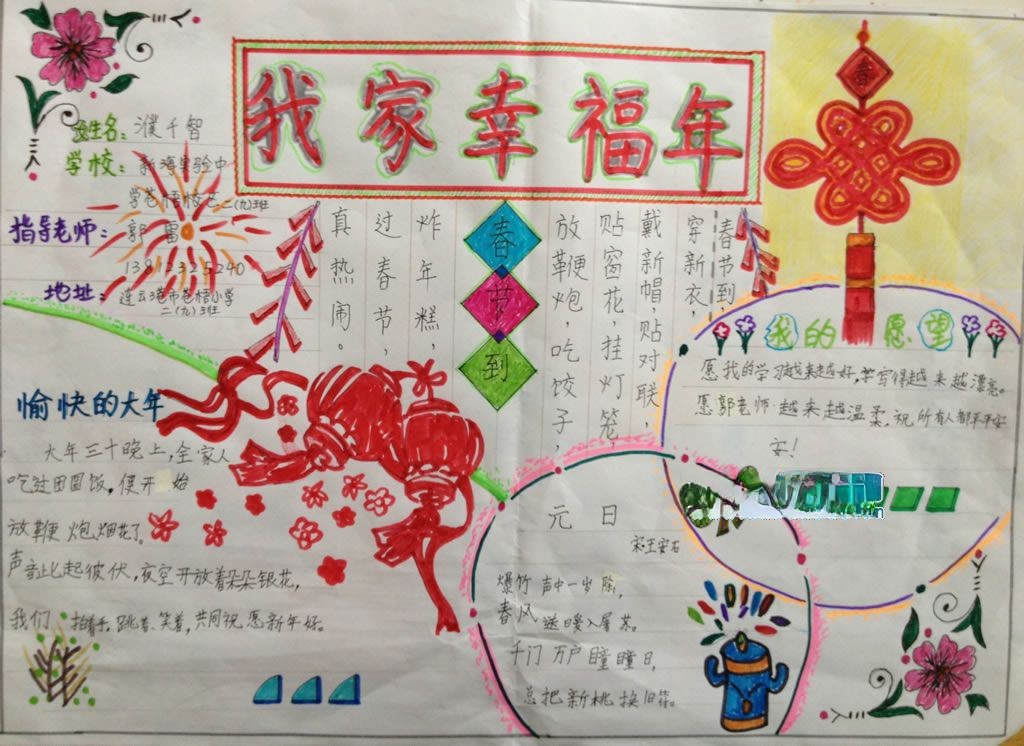 我家幸福年
春
姓名：濮千智
学校：新海实验中
学苍梧校区二(九)班
指导老师：郭雷
13812325240
地址：连云港市苍梧小学
二(九)班
春节到
春节到，
穿新衣，
戴新帽，贴对联，
贴窗花，挂灯笼，
放鞭炮，吃饺子，
炸年糕，
过春节，
真热闹。
我的愿望
愿我的学习越来越好，字写得越来越漂亮。
愿郭老师越来越温柔，祝所有人都平平安
安！
愉快的大年
大年三十晚上，全家人
吃过团圆饭，便开始
放鞭炮，烟花了。
声音此起彼伏，夜空开放着朵朵银花，
我们拍着手，跳着、笑着，共同祝愿新年好。
元日
宋王安石
爆竹声中一岁除，
春风送暖入屠苏。
千门万户瞳瞳日，
总把新桃换旧符。